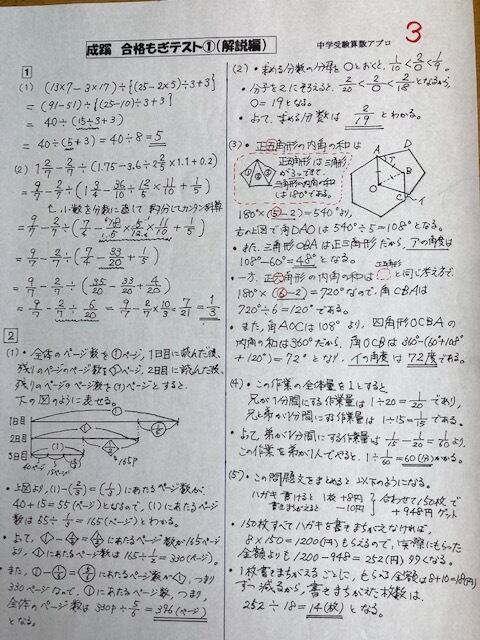 成蹊 合格もぎテスト①(解説編)
中学受験算数アプロ
3
1
(1) (13×7-3×17)÷{(25-2×5)÷3+3}
=(91-51)÷{(25-10)÷3+3}
=40÷(15÷3+3)
=40÷(5+3)=40÷8=5
(2) 1 2/7-2/7÷(1.75-3.6÷2 2/5×1.1+0.2)
=9/7-2/7÷(1 3/4-36/10÷12/5×11/10+1/5)
小数を分数に直して約分してカンタン計算
=9/7-2/7÷(7/4-
+1/5)
=9/7-2/7÷(7/4-33/20+1/5)
=9/7-2/7÷(35/20-33/20+4/20)
=9/7-2/7÷6/20=9/7-2/7×10/3=7/21=1/3
2
(1)・全体のページ数を①ページ, 1日目に読んだ後,
残りのページのページ数を
ページ, 2日目に読んだ後,
残りのページのページ数を(1)ページとすると,
下の図のように表せる。
1日目
2日目
3日目
40ページ 15ページ
165P
・上図より, (1)-(2/3)=(1/3)にあたるページ数が,
40+15=55(ページ)となるので, (1)にあたるページ
数は 55÷1/3=165(ページ)とわかる。
・よって,
にあたるページ数が165ページ
より,
にあたるページ数は 165÷1/2=330(ページ)。
また, ①-
=
にあたるページ数が
, つまり
330ページなので, ①にあたるページ数, つまり,
全体のページ数は 330÷5/6=396(ページ)
となる。
(2)・求める分数の分子を
0とおくと, 1/10<2/0<1/9。
・分子を2にそろえると, 2/20<2/0<2/18となるから,
0=19となる。
・よって, 求める分数は 2/19 とわかる。
(3)・正五角形の内角の和は
正五角形は三角形
が3つできて,
三角形の内角の和
は180°である。
A
D
ア
O
B
C
イ
180°×(5-2)=540°より,
右の上図で角DAOは 540°÷5=108°となる。
・また, 三角形OBAは正三角形だから, アの角度は
108°-60°=48°となる。
・一方, 正六角形の内角の和は
と同じ考え方で,
180°×(6-2)=720°なので, 角CBAは
720°÷6=120°である。
・また, 角AOCは108°より, 四角形OCBAの
内角の和は360°だから, 角OCBは360°-(60°+108°
+120°)=72°となり, イの角度は72度である。
(4)・この作業の全体量を1とすると,
兄が1分間にする作業量は 1÷20=1/20であり,
兄と弟が1分間にする作業量は 1÷15=1/15である。
・よって, 弟が1分間にする作業量は 1/15-1/20=1/60より,
この作業を弟が1人でやると, 1÷1/60=60(分)かかる。
(5)・この問題文をまとめると 以下のようになる。
ハガキ 書けると 1枚+8円
書きまちがえると -10円
合わせて150枚で
+948円ゲット
・150枚すべてハガキを書きまちがえなければ,
8×150=1200(円)もらえるので, 実際にもらった
金額よりも 1200-948=252(円)多くなる。
・1枚書きまちがえるごとに, もらえる金額は8+10=18(円)
ずつ減るから, 書きまちがえた枚数は,
252÷18=14(枚)
となる。